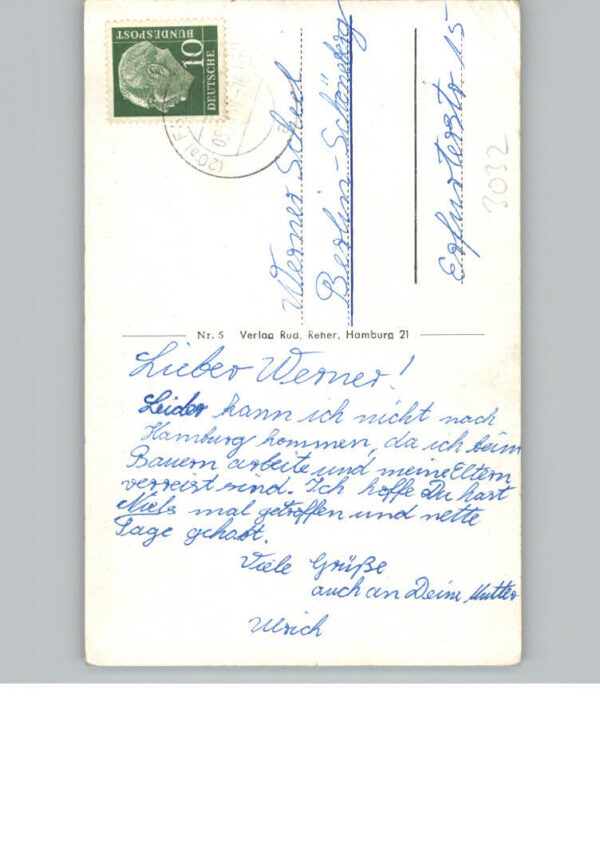 DEUTSCHE
BUNDESPOST
10
(20a)
Werner
Berlin-Schöneberg
Erfurterstr 15
3032
Nr. 5 Verlag Rud. Reher, Hamburg 21
Lieber Werner!
Leider kann ich nicht nach
Hamburg kommen, da ich beim
Bauern arbeite und meine Eltern
verreist sind. Ich hoffe Du hast
Niels mal getroffen und nette
Tage gehabt.
Viele Grüße
auch an Deine Mutter
Ulrich